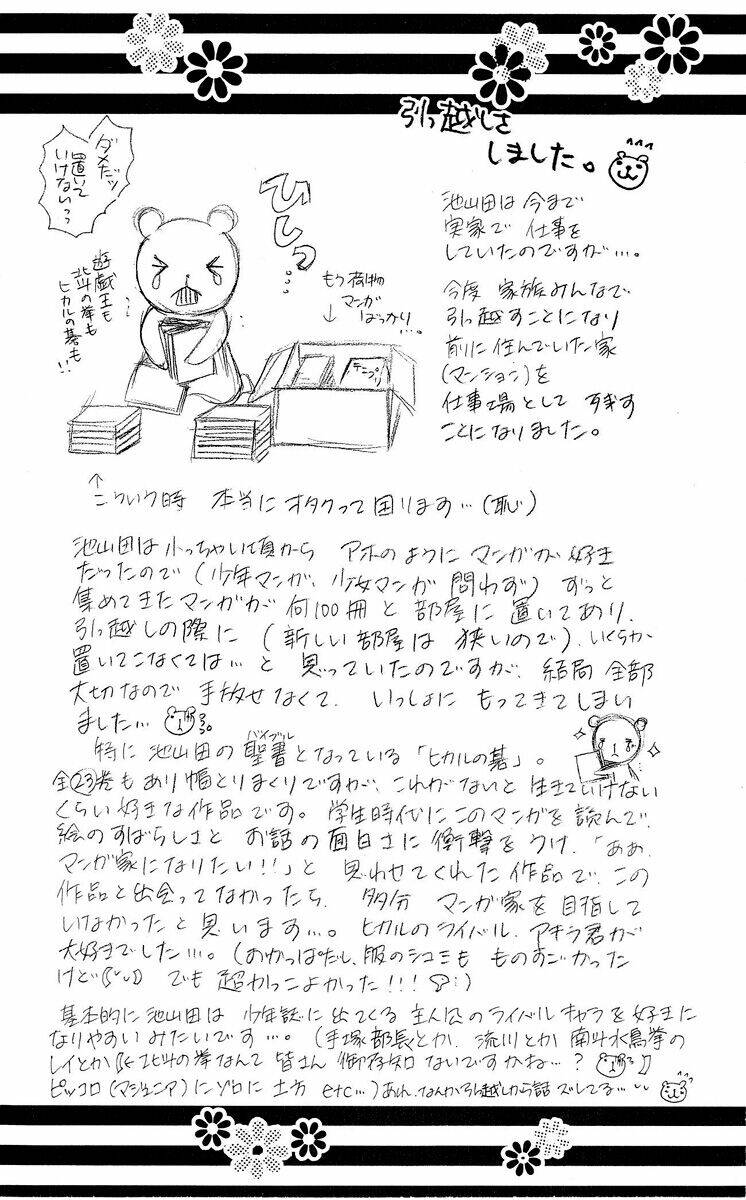 引っ越しを
しました。
池山田は今まで
実家で仕事を
していたのですが…。
今度 家族みんなで
引っ越すことになり
前に住んでいた家
(マンション)を
仕事場として
ことになりました。
ダメだッ
置いて
いけないっっ
遊戯王も
北斗の拳も
ヒカルの碁も!!
ひしっ…
もう荷物
マンガ
ばっかり…。
↓
テニプリ
↑
こういう時 本当にオタクって困ります…(恥)
池山田は小っちゃい頃から アホのように マンガが好き
だったので(少年マンガ、少女マンガ 問わず)ずっと
集めてきたマンガが 何100冊と 部屋に 置いてあり、
引っ越しの際に (新しい部屋は 狭いので)、いくらか
置いてこなくては…と 思っていたのですが、結局 全部
大切なので 手放せなくて、いっしょに もってきてしまい
ました…
特に 池山田の 聖書となっている「ヒカルの碁」。
バイブル
全23巻もあり幅とりまくりですが、これがないと 生きていけない
くらい好きな作品です。学生時代にこのマンガを読んで、
絵のすばらしさと お話の面白さに 衝撃をうけ、「ああ、
マンガ家になりたい!!」と 思わせてくれた作品で、この
作品と出会ってなかったら、多分 マンガ家を目指して
いなかったと思います…。ヒカルのライバル、アキラ君が
大好きでした…。(おかっぱだし、服のシュミも ものすごかった
けど でも 超かっこよかった!!!)
基本的に池山田は 少年誌に出てくる 主人公のライバルキャラを好きに
なりやすいみたいです…。(手塚部長とか、流川とか 南斗水鳥拳の
レイとか 北斗の拳なんて 皆さん 御存知ないですかね…?
ピッコロ(マジュニア)にゾロに 土方 etc…)あれ、なんか引っ越しから話 ズレてる…